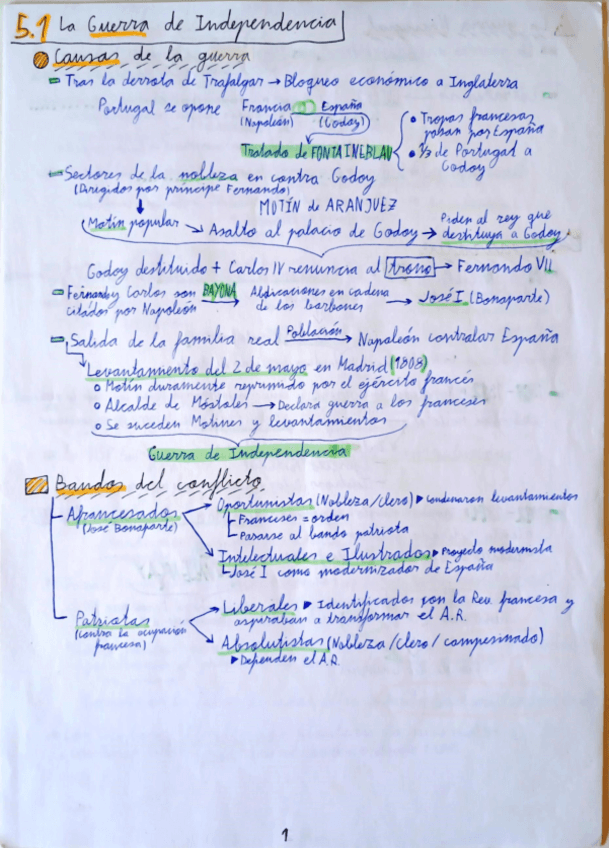 5.1 La Guerra de Independencia
Causas de la guerra
Tras la derrota de Trafalgar → Bloqueo económico a Inglaterra
Portugal se opone Francia España
(Napoleón) (Godoy)
Tratado de FONTAINEBLAU
• Tropas francesas pasan por España
• 1/3 de Portugal a Godoy
Sectores de la nobleza en contra Godoy
(Dirigidos por príncipe Fernando)
MOTÍN de ARANJUEZ
Motín popular → Asalto al palacio de Godoy → Piden al rey que
destituya a Godoy
Godoy destituido + Carlos IV renuncia al trono → Fernando VII
Fernando y Carlos son BAYONA Abdicaciones en cadena → José I (Bonaparte)
citados por Napoleón → de los borbones
Salida de la familia real Población → Napoleón controlar España
Levantamiento del 2 de mayo en Madrid (1808)
Motín duramente reprimido por el ejército francés
Alcalde de Móstoles → Declara guerra a los franceses
Se suceden Motines y levantamientos
Guerra de Independencia
Bandos del conflicto
Afrancesados
(José Bonaparte)
Oportunistas (Nobleza/Clero) ▸ Condenaron levantamientos
Franceses = orden
Pasarse al bando patriota
Intelectuales e Ilustrados ▸ Proyecto modernista
José I como modernizador de España
Patriotas
(Contra la ocupación
francesa)
Liberales ▸ Identificados con la Rev. francesa y
aspiraban a transformar el A.R.
Absolutistas (Nobleza / Clero / campesinado)
▸ Dependen el A.R.
1